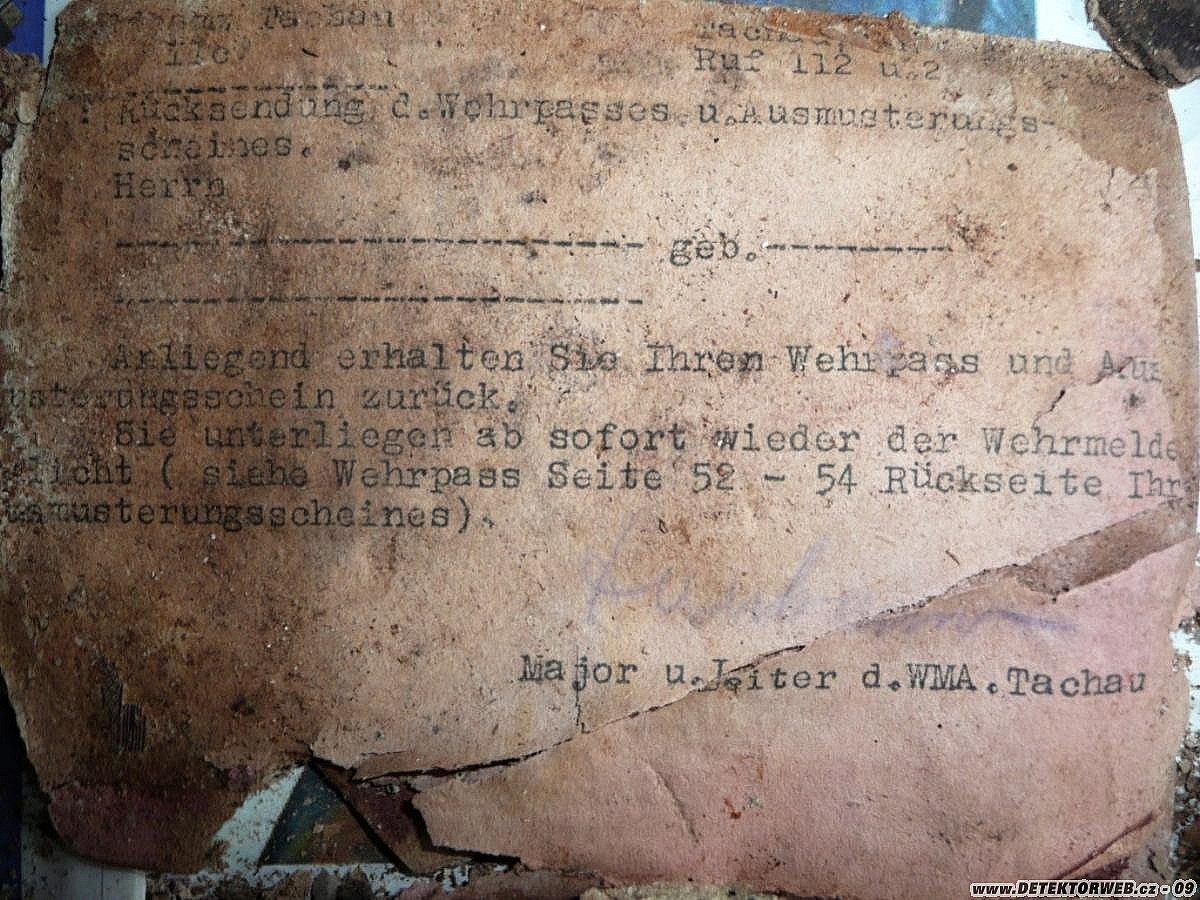 Tachau
Ruf 112 u.2
Rücksendung d.Wehrpasses u.Ausmusterungs-
scheines.
Herrn
geb.
Anliegend erhalten Sie Ihren Wehrpass und Aus
usterungsschein zurück.
Sie unterliegen ab sofort wieder der Wehrmelde
licht ( siehe Wehrpass Seite 52 - 54 Rückseite Ihr
usmusterungsscheines).
Major u.Leiter d.WMA.Tachau
www.DETEKTORWEB.cz - 09